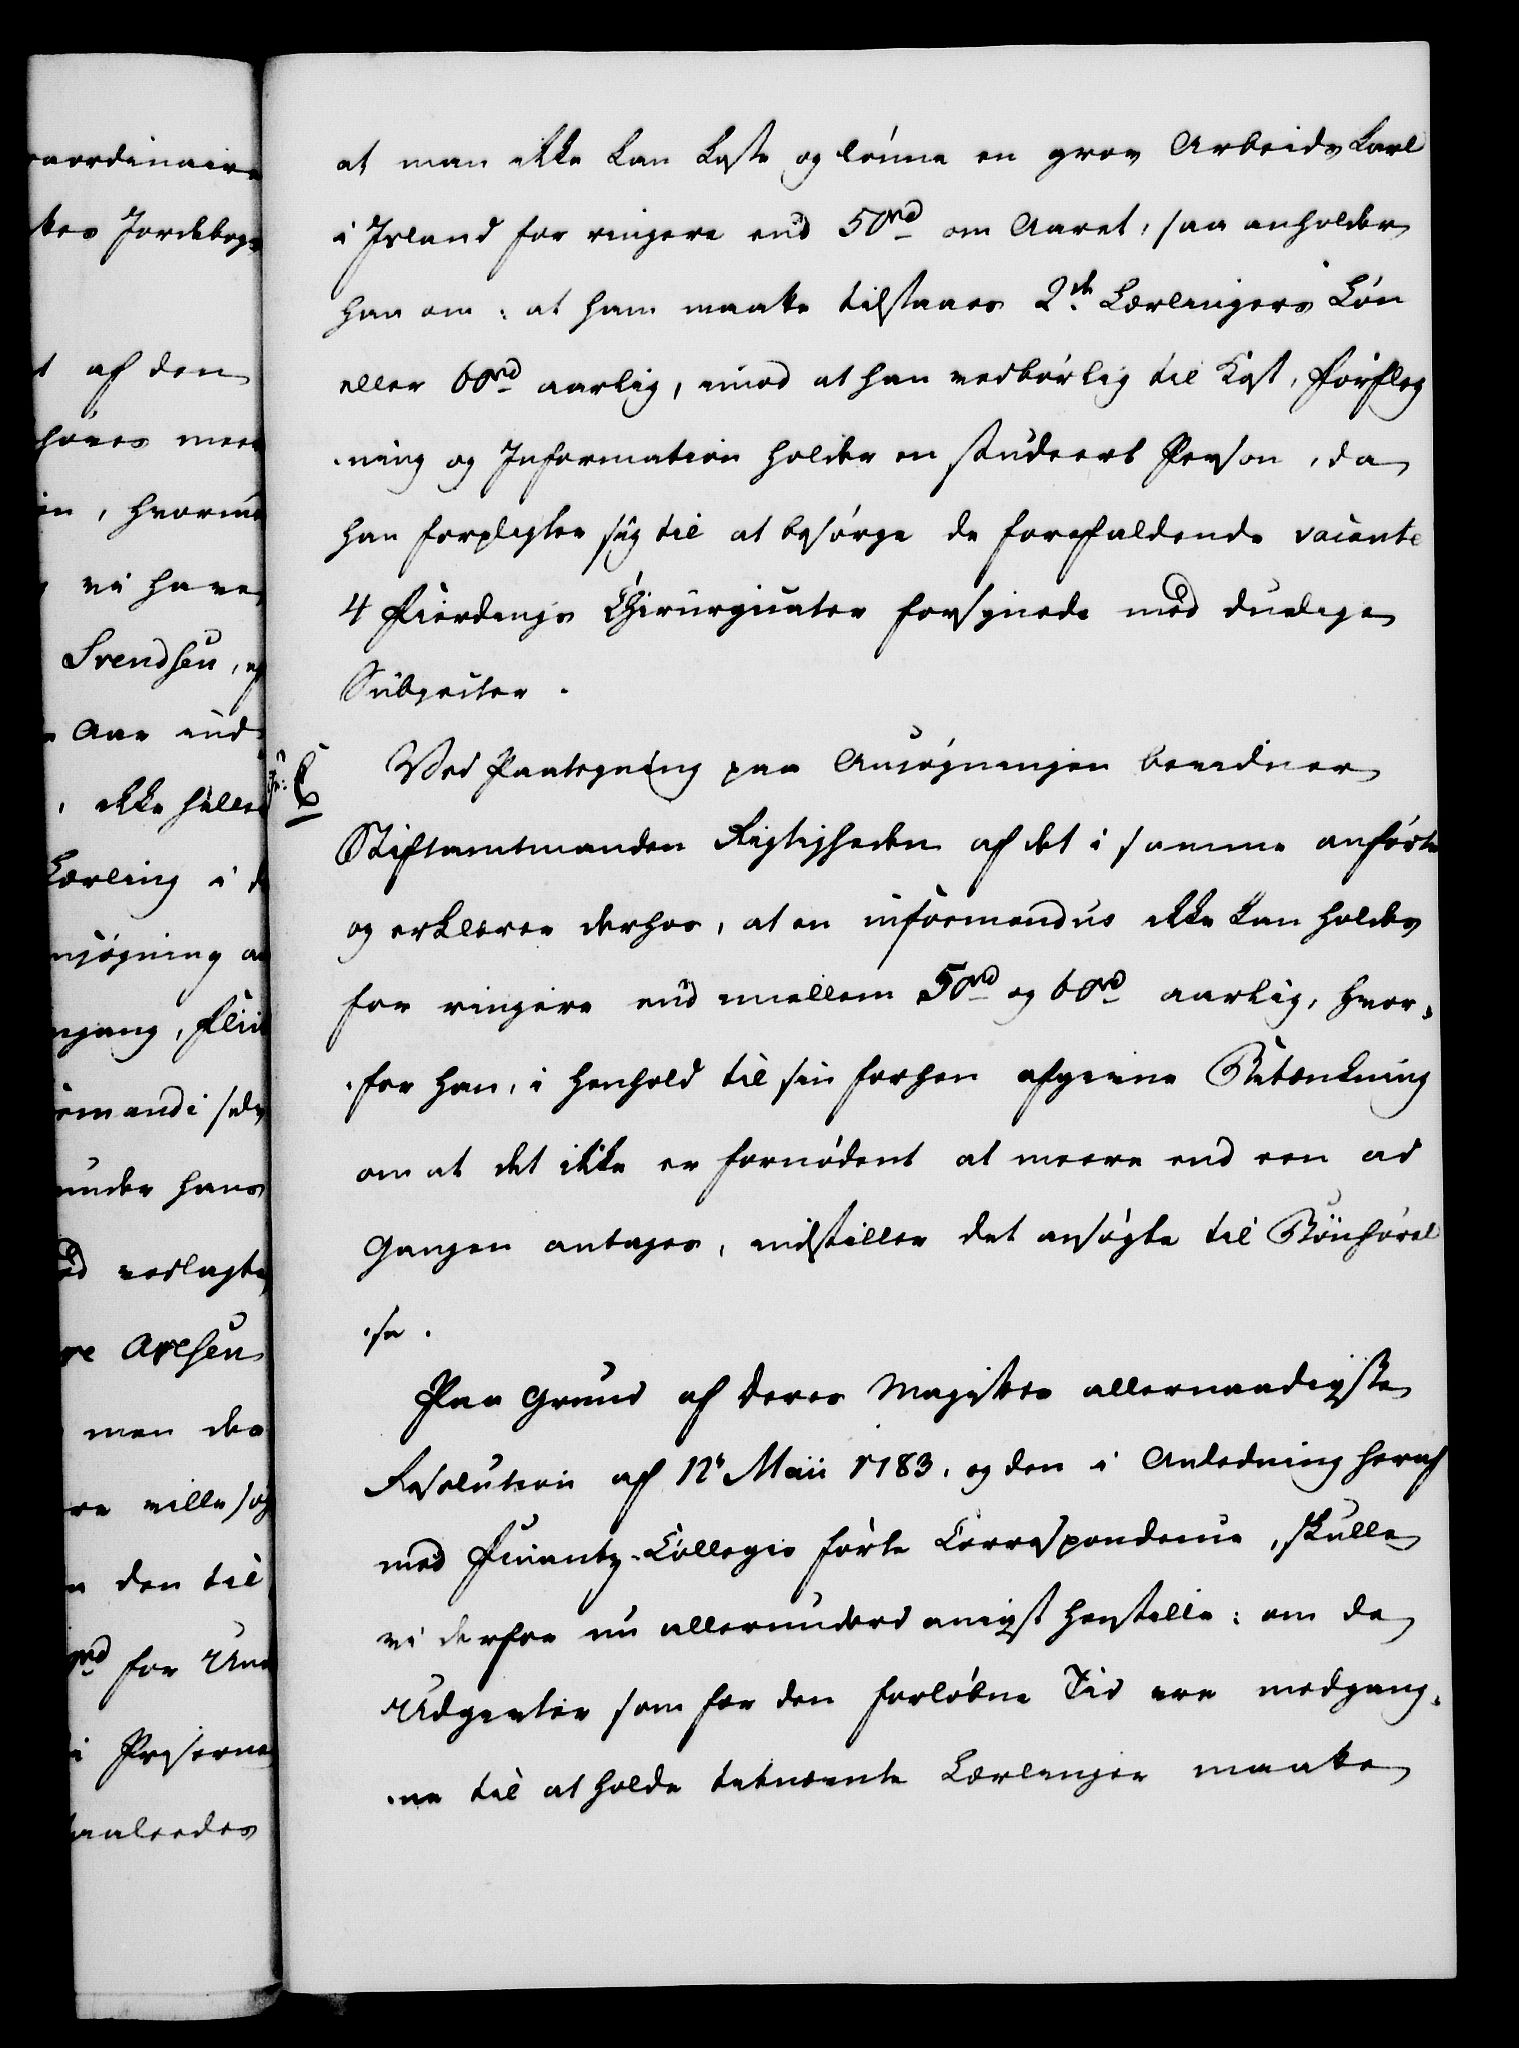 raordinaire
kes Jordebogs
t af den
høves meer
in, hvorme
vi have
Svendsen, og
Aar ind
, ikke heller
Lærling i de
nsøgning a
ngang, Fliid
emandi selv
under hans
ed vedlagte
re Arelsen
men des
re ville søg
n den til
rd for Und
i Priserne
aaledes
at man ikke kan koste og lønne en grov Arbeids Karl
i Island for ringere end 50rd om Aaret, saa anholder
han om: at ham maatte tilstaaes 2de Lærlingers Løn
eller 60rd aarlig, imod at han vedbørlig til Kost, Forpleg
-ning og Information holder en studeert Person, da
han forpligter sig til at besørge de forefaldende vacante
4 Fierdings Chirurgicater forsynede med duelige
Subjecter.
Ved Paategning paa Ansøgningen bevidner
Stiftamtmanden Rigtigheden af det i samme anførte
og erklærer derhos, at en informandus ikke kan holdes
for ringere end imellem 50rd og 60rd aarlig, hvor-
-for han, i Henhold til sin forhen afgivne Betænkning
om at det ikke er fornødent at meere end een ad
Gangen antages, indstiller det ansøgte til Bönhørel
-se.
Paa Grund af Deres Majestets allernaadigste
Resolution af 12te Maii 1783, og den i Anledning heraf
med Finantz-Collegio førte Correspondence, skulle
vi derfor nu allerunderdanigst henstille: om de
Udgivter som for den forløbne Tid ere medgang-
-ne til at holde bemeldte Lærlinger maatte